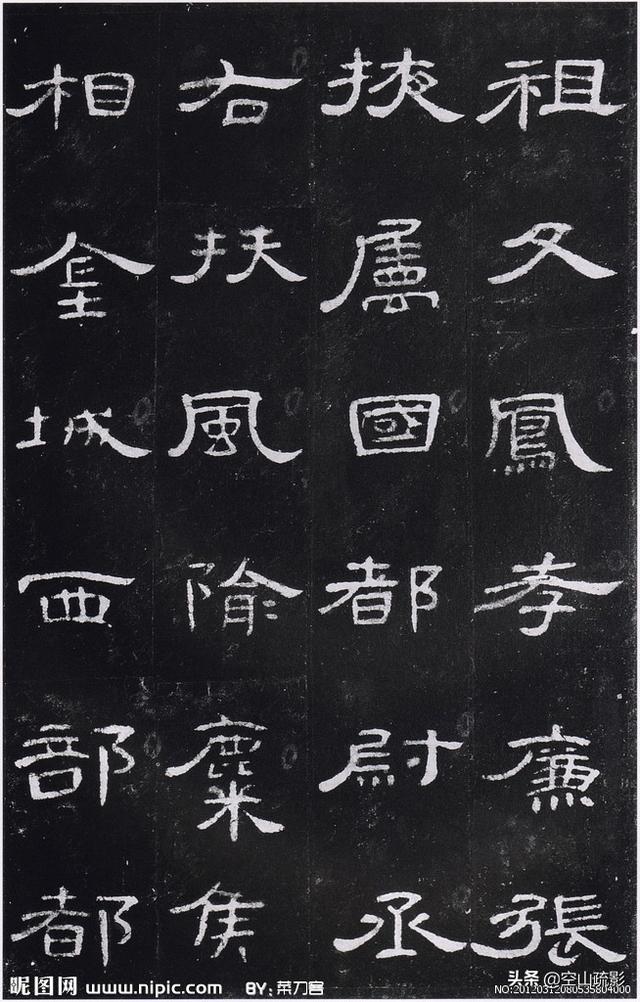 祖父鳳孝廉張
掖屬國都尉丞
右扶風隃麋侯
相金城西部都
头条 @空山疏影
昵图网 www.nipic.com BY: 菜刀客 NO:20120312080535804000